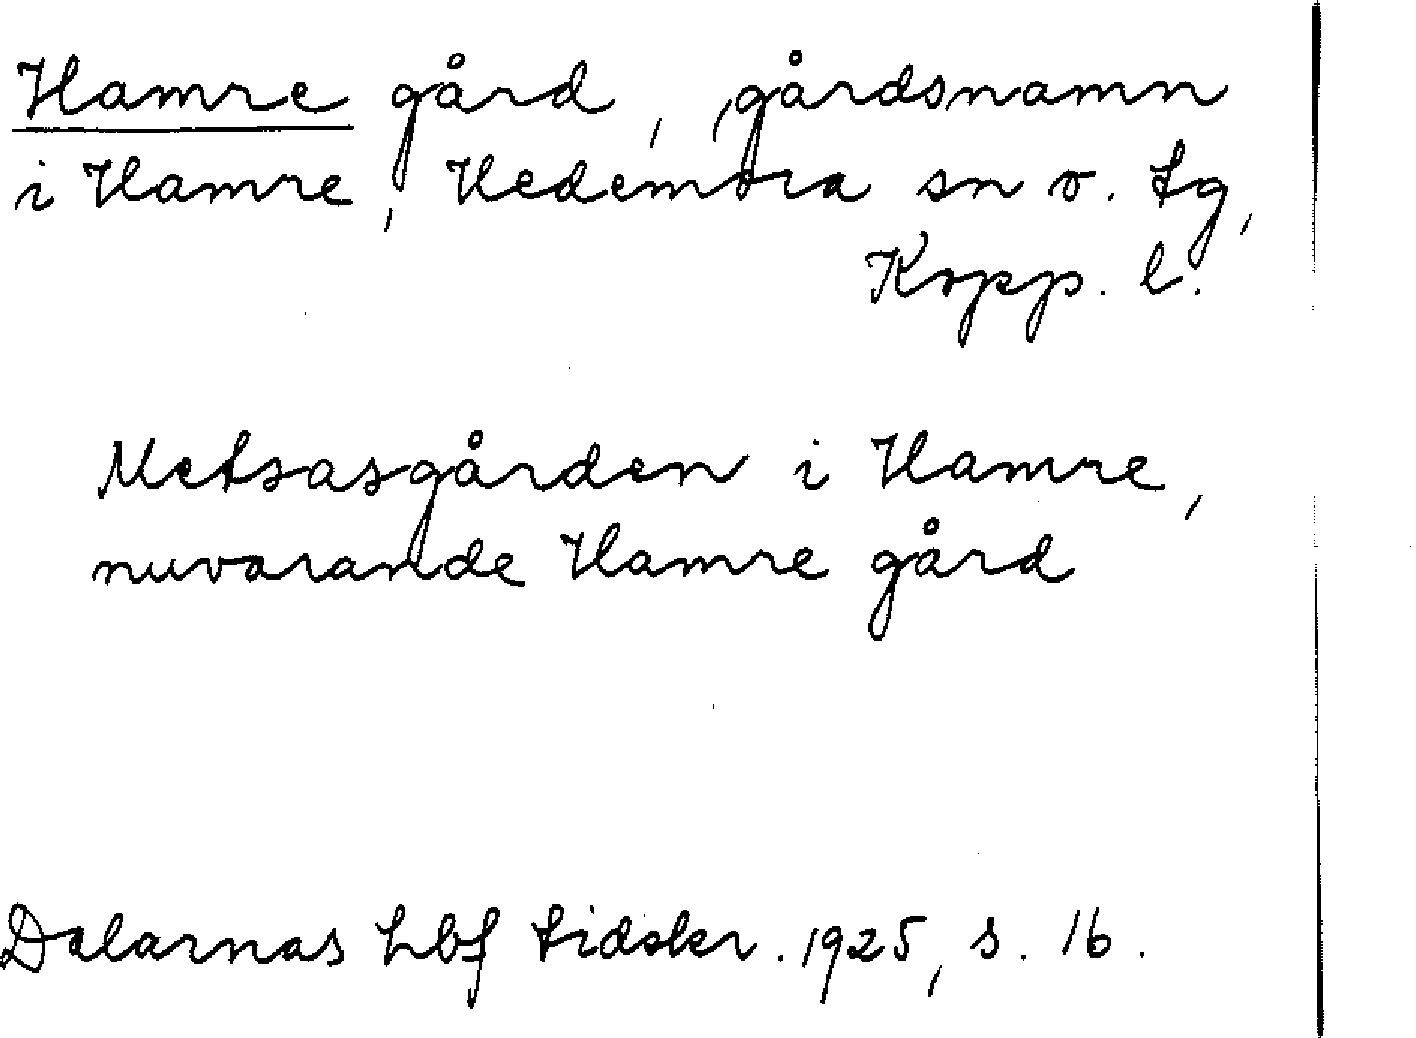 Hamre gård, gårdsnamn
i Hamre, Hedemora sn o. tg,
Kopp. l.
Metsasgården i Hamre,
nuvarande Hamre gård
Dalarnas hbf tidskr. 1925, s. 16.